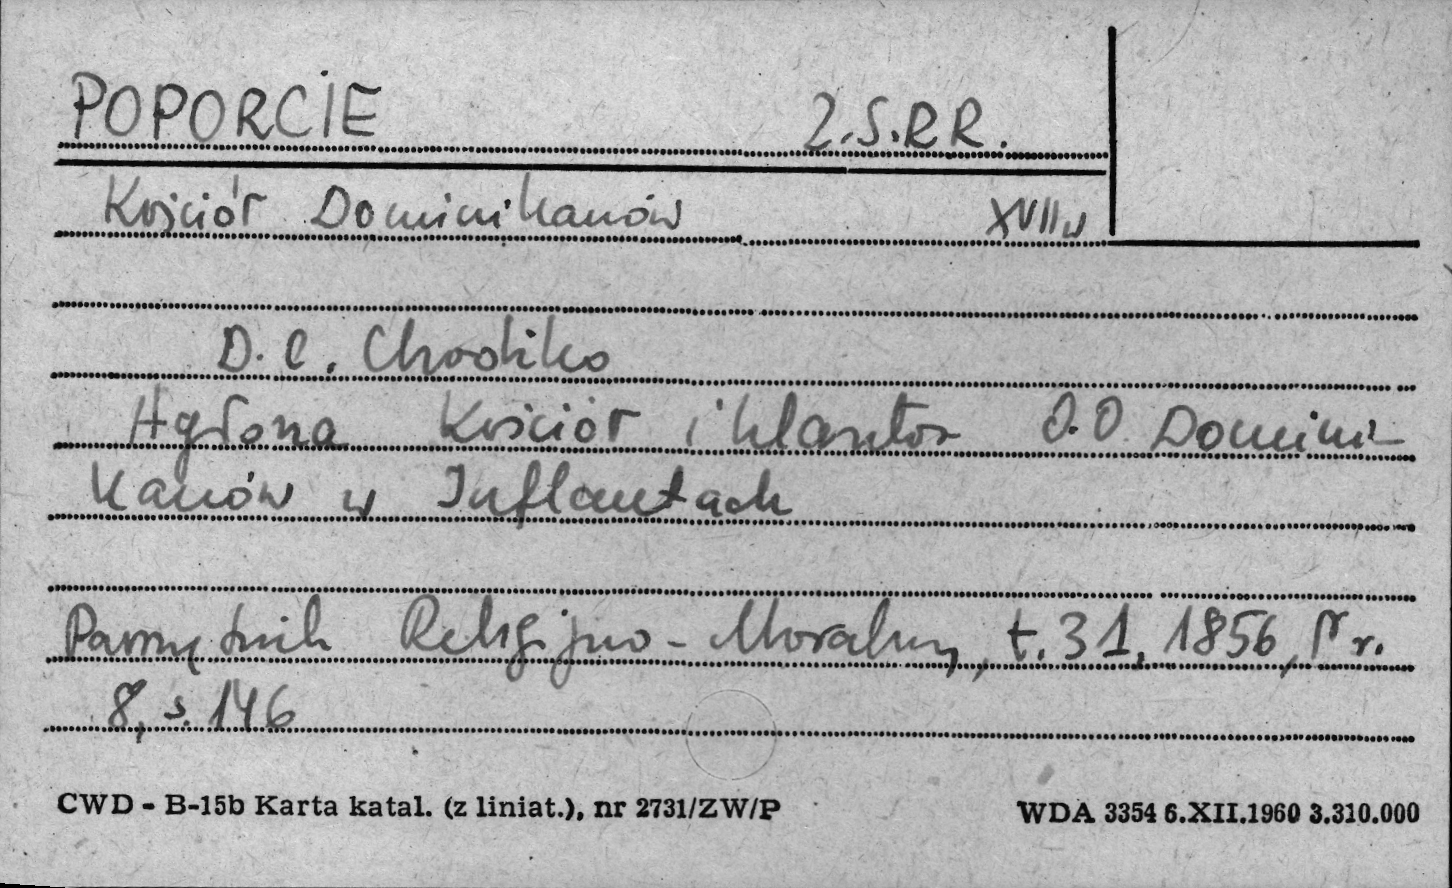 POPORCIE Z.S.R R.
Kościół Dominikanów XVII w
D. C. Chodźko
Agłona Kościół i klasztor O.O Domini-
kanów w Inflantach
Pamiętnik Religijno-Moralny, t. 31, 1856, Nr.
8, s. 146
CWD - B-15b Karta katal. (z liniat.), nr 2731/ZW/P WDA 3354 6.XII.1960 3.310.000